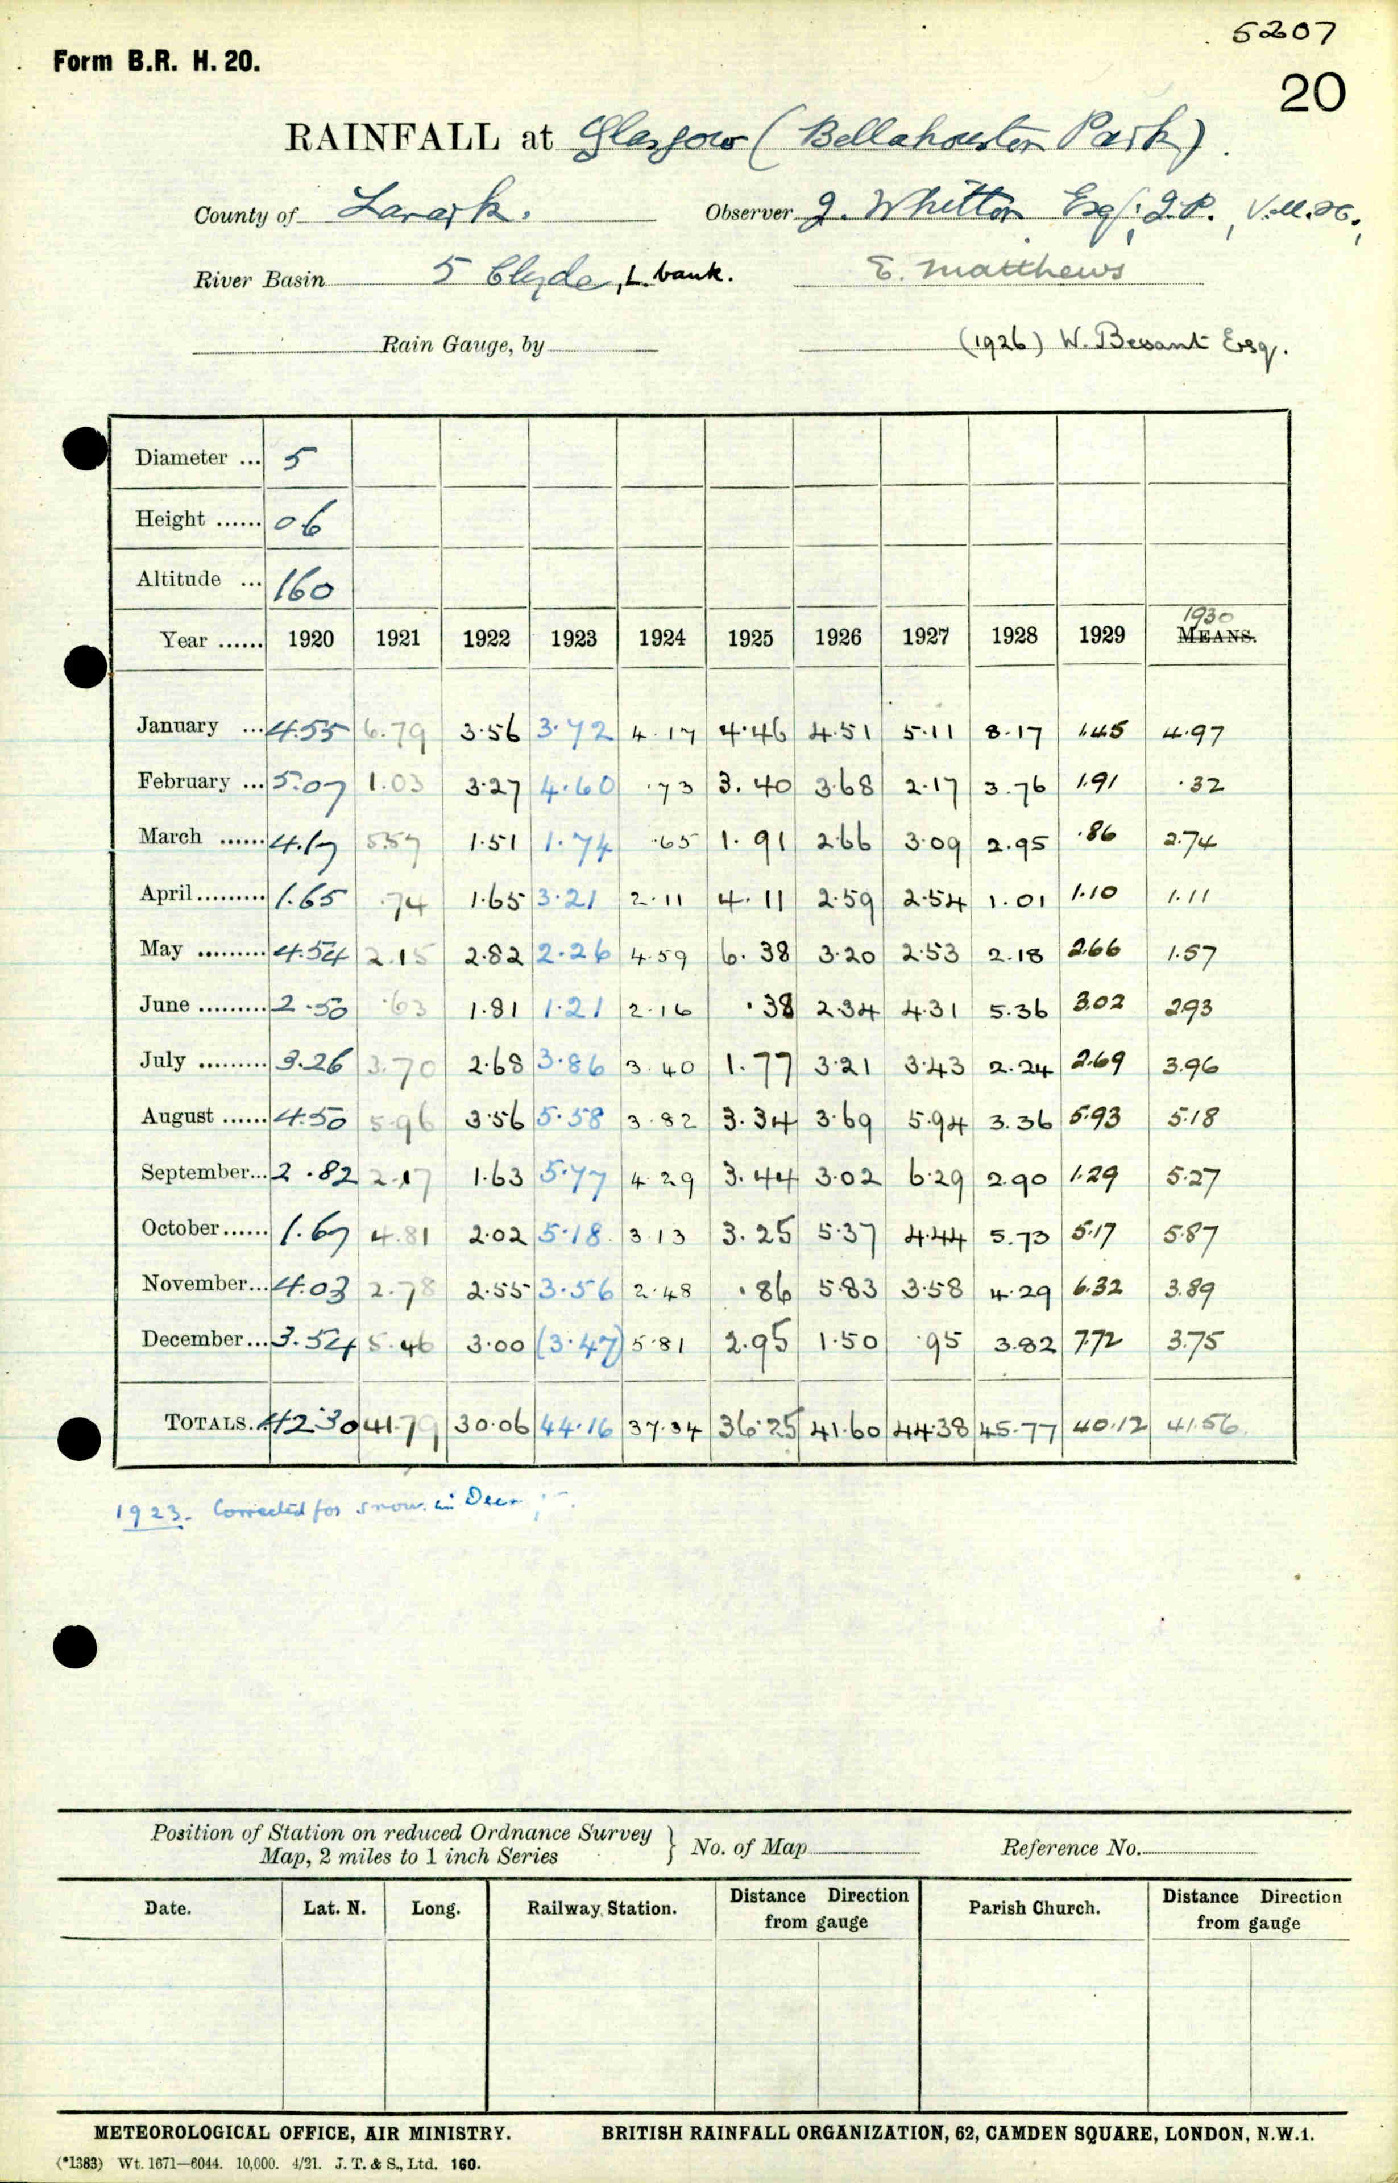 5207
Form B.R. H. 20.
20
RAINFALL at Glasgow (Bellahouston Park).
County of Lanark. Observer J. Whitton Esq., J.P., V.M.H.,
River Basin 5 Clyde, L. bank. E. Matthews
Rain Gauge, by (1926) W. Bessant Esq.
Diameter ... 5
Height ...... 06
Altitude ... 160
1930
Year ...... 1920 1921 1922 1923 1924 1925 1926 1927 1928 1929 MEANS.
January ... 4.55 6.79 3.56 3.72 4.17 4.46 4.51 5.11 8.17 1.45 4.97
February ... 5.07 1.03 3.27 4.60 .73 3.40 3.68 2.17 3.76 1.91 .32
March ...... 4.17 5.57 1.51 1.74 .65 1.91 2.66 3.09 2.95 .86 2.74
April ......... 1.65 .74 1.65 3.21 2.11 4.11 2.59 2.54 1.01 1.10 1.11
May ......... 4.54 2.15 2.82 2.26 4.59 6.38 3.20 2.53 2.18 2.66 1.57
June ......... 2.50 .63 1.81 1.21 2.16 .38 2.34 4.31 5.36 3.02 2.93
July ......... 3.26 3.70 2.68 3.86 3.40 1.77 3.21 3.43 2.24 2.69 3.96
August ...... 4.50 5.96 3.56 5.58 3.82 3.34 3.69 5.94 3.36 5.93 5.18
September... 2.82 2.17 1.63 5.77 4.29 3.44 3.02 6.29 2.90 1.29 5.27
October...... 1.67 4.81 2.02 5.18 3.13 3.25 5.37 4.44 5.73 5.17 5.87
November... 4.03 2.78 2.55 3.56 2.48 .86 5.83 3.58 4.29 6.32 3.89
December... 3.54 5.46 3.00 (3.47) 5.81 2.95 1.50 .95 3.82 7.72 3.75
TOTALS. 42.30 41.79 30.06 44.16 37.34 36.25 41.60 44.38 45.77 40.12 41.56
1923. Corrected for snow in Decr
Position of Station on reduced Ordnance Survey
Map, 2 miles to 1 inch Series } No. of Map Reference No.
Date. Lat. N. Long. Railway Station. Distance Direction from gauge Parish Church. Distance Direction from gauge
METEOROLOGICAL OFFICE, AIR MINISTRY. BRITISH RAINFALL ORGANIZATION, 62, CAMDEN SQUARE, LONDON, N.W.1.
(*1383) Wt. 1671—6044. 10,000. 4/21. J. T. & S., Ltd. 160.